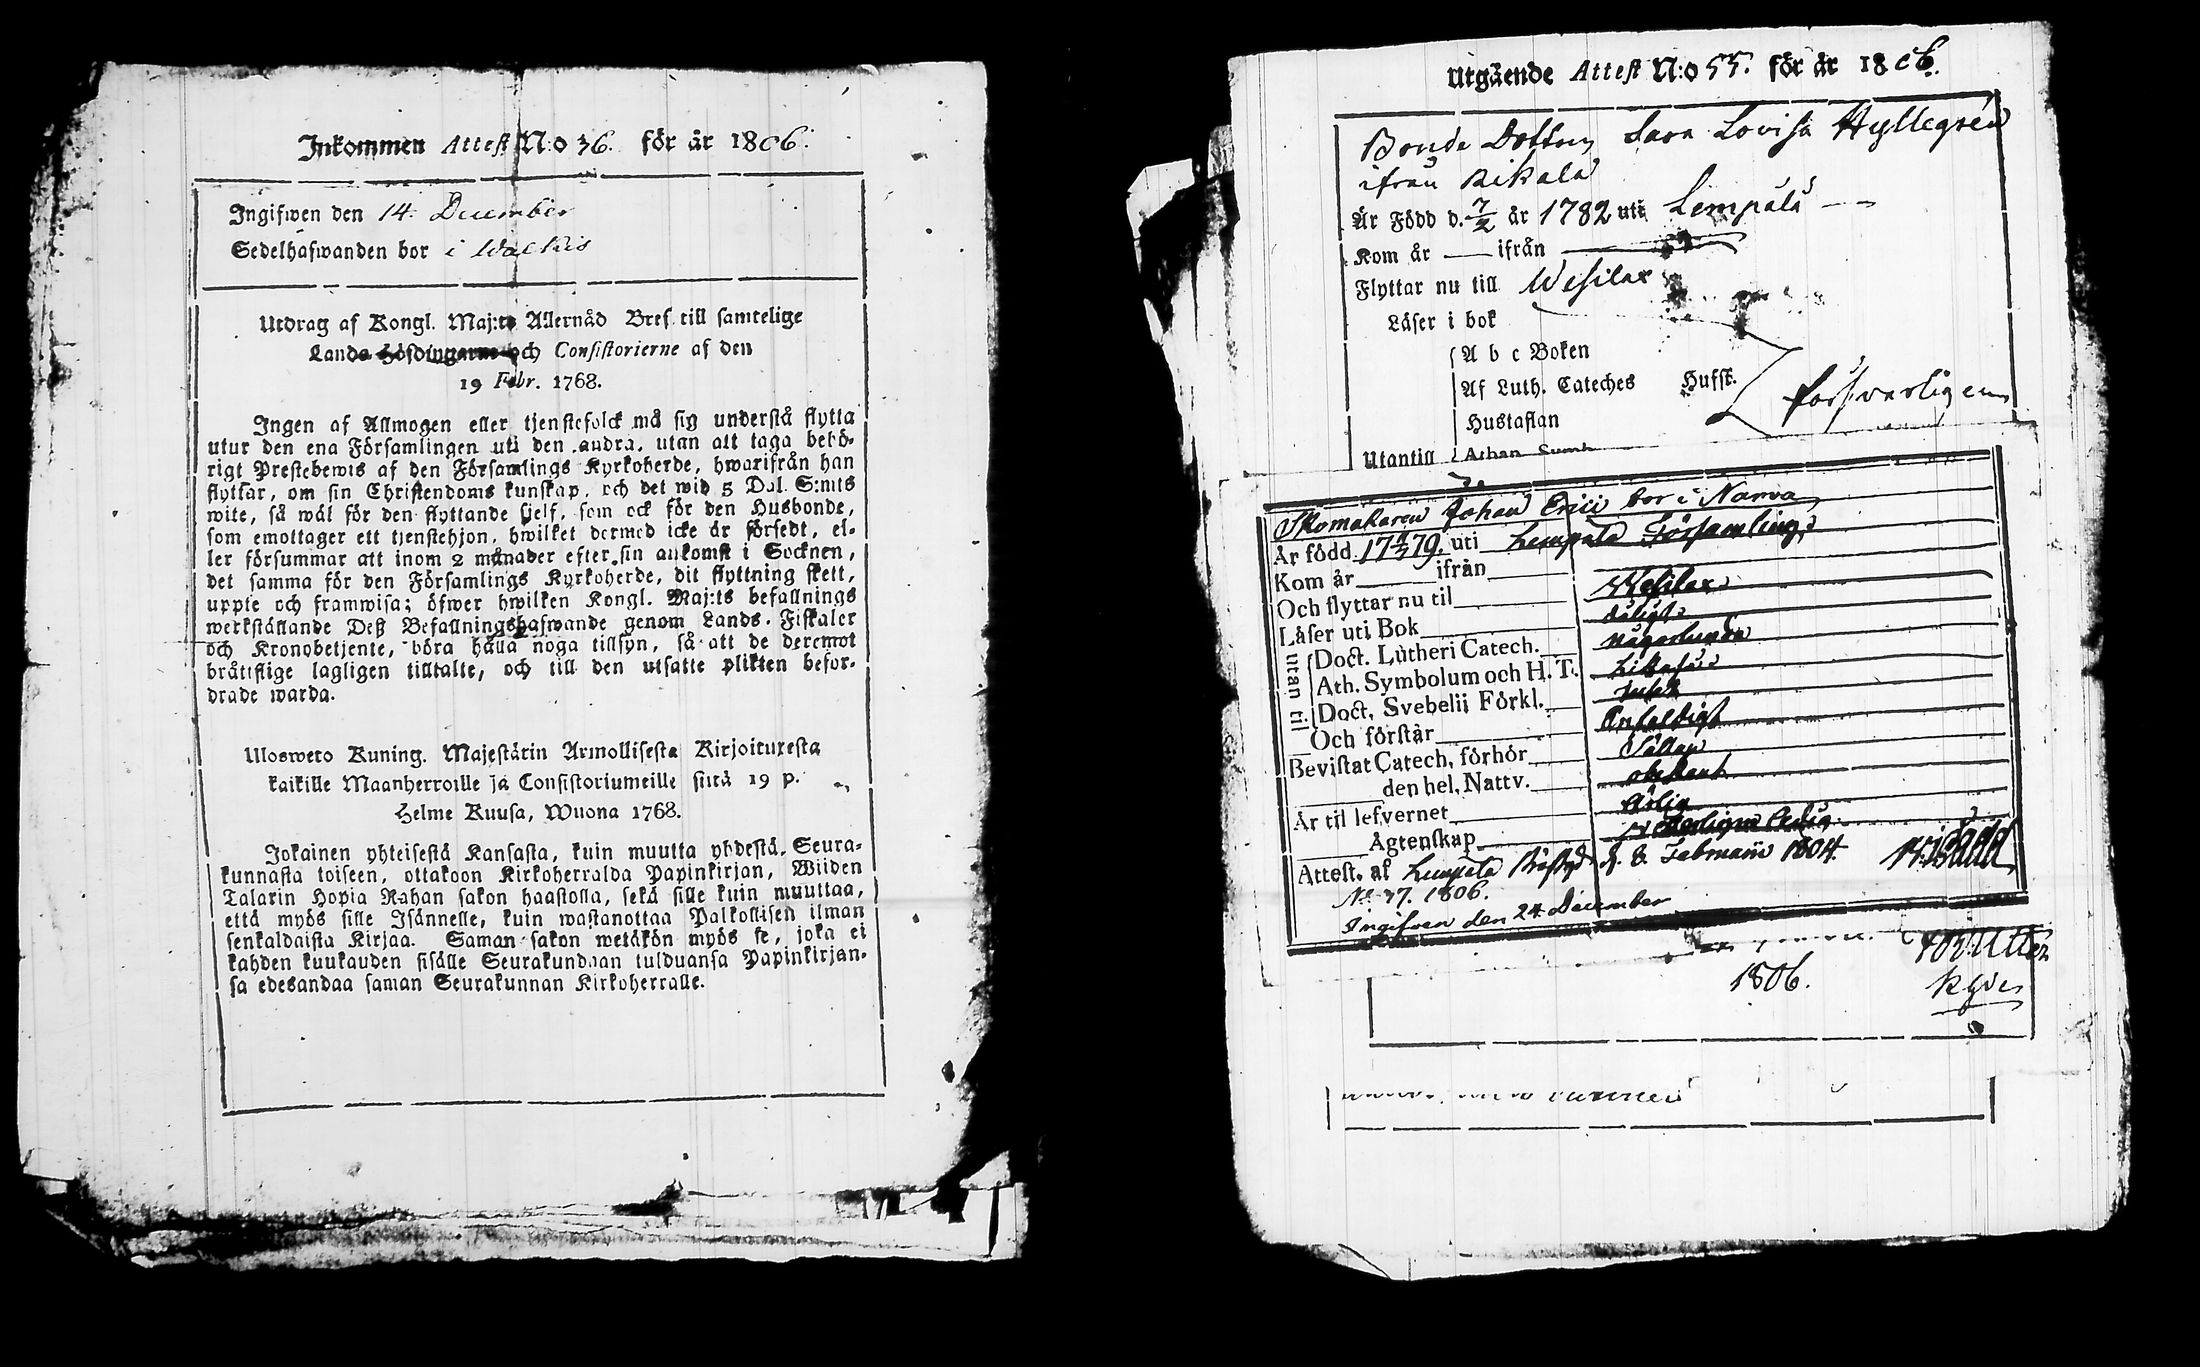 Inkommen Attest N:o 36. för år 1806.
Ingifwen den 14. December
Sedelhafwanden bor i Walkis
Utdrag af Kongl. Maj:ts Allernåd Bref till samtelige
Lands Höfdingarne och Consistorierne af den
19 Febr. 1768.
Ingen af Allmogen eller tjenstefolck må sig understå flytta
utur den ena Församlingen uti den andra, utan att taga behö-
rigt Prestebewis af den Församlings Kyrkoherde, hwarifrån han
flyttar, om sin Christendoms kunskap, och det wid 5 Dal. S:mts
wite, så wäl för den flyttande sjelf, som ock för den Husbonde,
som emottager ett tjenstehjon, hwilket dermed icke är försedt, el-
ler försummar att inom 2 månader efter sin ankomst i Socknen,
det samma för den Församlings Kyrkoherde, dit flyttning skett,
uppte och framwisa; öfwer hwilken Kongl. Maj:ts befallnings
werkställande Deß Befallningshafwande genom Lands-Fiskaler
och Kronobetjente, böra hålla noga tillsyn, så att de deremot
bråttslige lagligen tilltalte, och till den utsatte plikten befor-
drade warda.
Ulosweto Kuning. Majestätin Armollisesta Kirjoituxesta
kaikille Maanherroille ja Consistoriumeille siitä 19 p.
Helme Kuusa, Wuona 1768.
Jokainen yhteisestä Kansasta, kuin muutta yhdestä Seura-
kunnasta toiseen, ottakoon Kirkoherralda Papinkirjan, Wiiden
Talarin Hopia Rahan sakon haastolla, sekä sille kuin muuttaa,
että myös sille Isännelle, kuin wastanottaa Palkollisen ilman
senkaldaista Kirjaa. Saman sakon wetäkön myös se, joka ei
kahden kuukauden sisälle Seurakundaan tulduansa Papinkirjan-
sa edesandaa saman Seurakunnan Kirkoherralle.
Utgående Attest N:o 55. för år 1806.
Bonde Dottren Sara Lovisa Hyllegrén
ifrån Rikala
Är Född d. 7/2 år 1782 uti Lempälä
Kom år ifrån
Flyttar nu till Wesilax
Läser i bok
A b c Boken
Af Luth. Cateches Husst.
Hustaflan
försvarligen
Utantill Athan. Symb.
Skomakaren Johan Erici bor i Narva
Är född 17 79. uti Lempälä Församling
Kom år ifrån
Och flyttar nu til Wesilax
Låser uti Bok dåligt
Utan til Doct. Lutheri Catech. någorlunda
Ath. Symbolum och H. T. Likaså
Doct. Svebelii Förkl. intet
Och förstår Enfaldigt
Bevistat Catech. förhör Sällan
den hel. Nattv. obekant
Är til lefvernet Ärlig
Ägtenskap Ledig
Attest. af Lempälä d. 8. Februarii 1804.
No 37. 1806.
Ingifven den 24 December
1806.